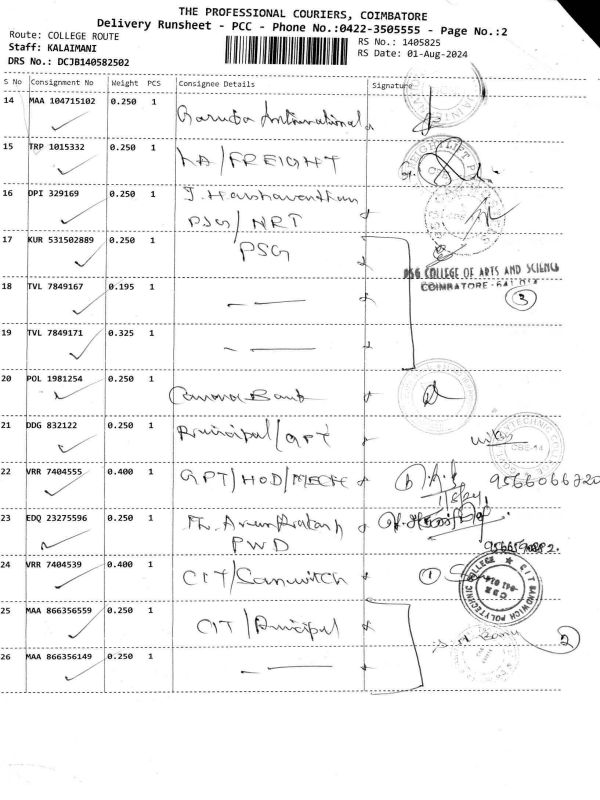 THE PROFESSIONAL COURIERS, COIMBATORE
Delivery Runsheet - PCC - Phone No.:0422-3505555 - Page No.:2
Route: COLLEGE ROUTE
RS No.: 1405825
Staff: KALAIMANI
RS Date: 01-Aug-2024
DRS No.: DCJB140582502
S No Consignment No Weight PCS Consignee Details Signature
14 MAA 104715102 0.250 1 Garuda International
15 TRP 1015332 0.250 1 LA/FREIGHT
16 DPI 329169 0.250 1 J. Harshavardhan
PSG/NRT
17 KUR 531502889 0.250 1 PSG
PSG COLLEGE OF ARTS AND SCIENCE
COIMBATORE - 641 014
18 TVL 7849167 0.195 1 - —
3
19 TVL 7849171 0.325 1 - —
20 POL 1981254 0.250 1 Canara Bank
21 DDG 832122 0.250 1 Principal/GPT
22 VRR 7404555 0.400 1 GPT/HOD/MECH 9566066720
23 EDQ 23275596 0.250 1
PWD
24 VRR 7404539 0.400 1 CIT/Sandwich 1
CIT SANDWICH POLYTECHNIC COLLEGE
25 MAA 866356559 0.250 1 CIT/Principal
2
26 MAA 866356149 0.250 1 - —